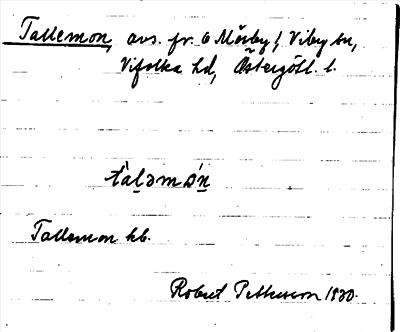 Tallemon, avs. fr. 6 Mörby, Viby sn,
Vifolka hd, Östergötl. l.
tal̠əmɔ́n̠
Tallemon kb.
Robert Pettersson 1930.